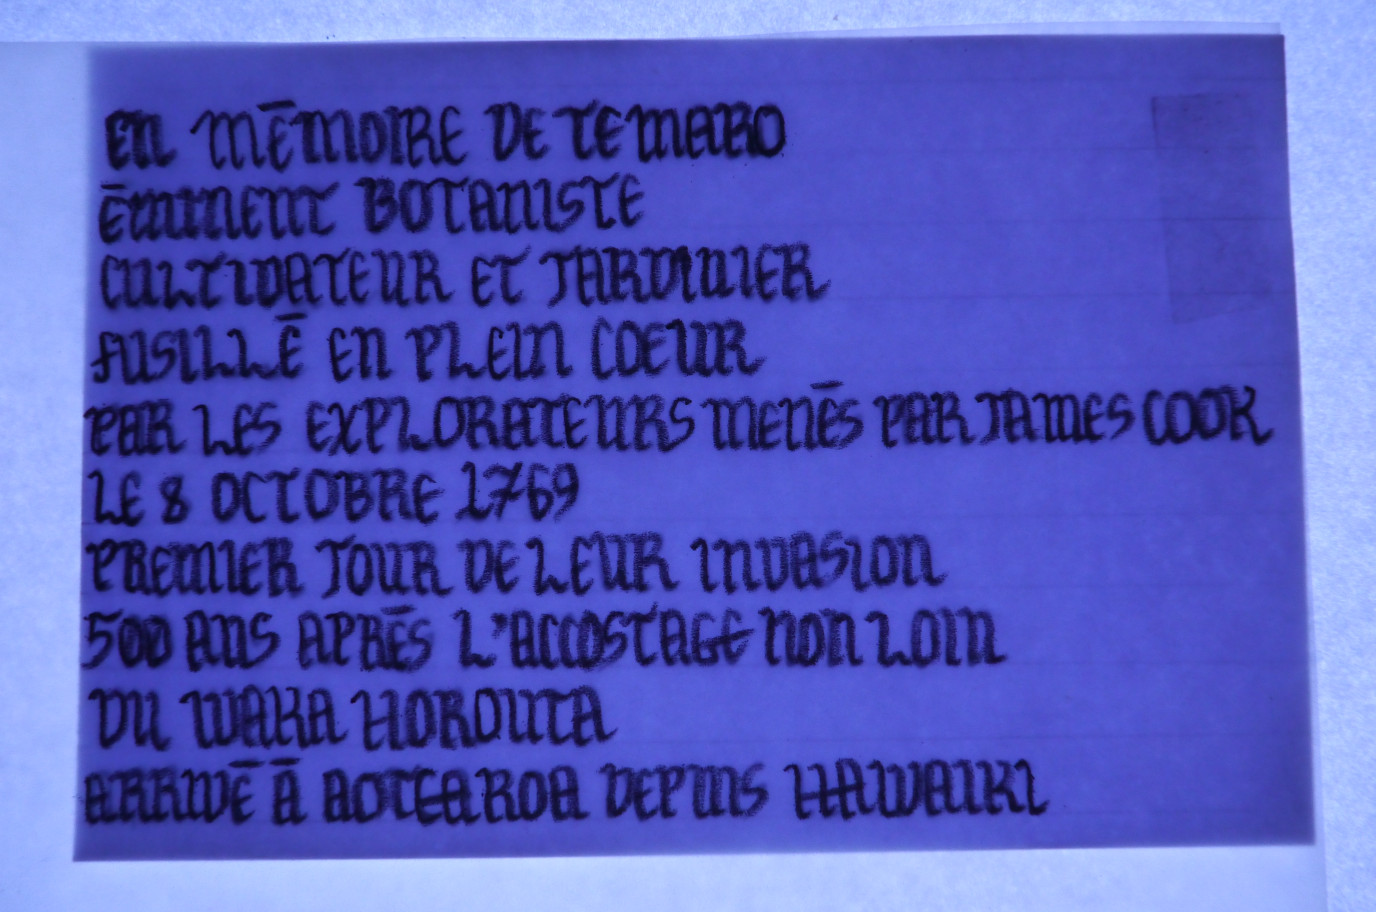 EN MĒMOIRE DE TE MARO
ĒMINENT BOTANISTE
CULTIVATEUR ET JARDINIER
FUSILLĒ EN PLEIN COEUR
PAR LES EXPLORATEURS MENĒS PAR JAMES COOK
LE 8 OCTOBRE 1769
PREMIER JOUR DE LEUR INVASION
500 ANS APRĒS L'ACCOSTAGE NON LOIN
DU WAKA HOROUTA
ARRIVĒ Ā AOTEAROA DEPUIS HAWAIKI